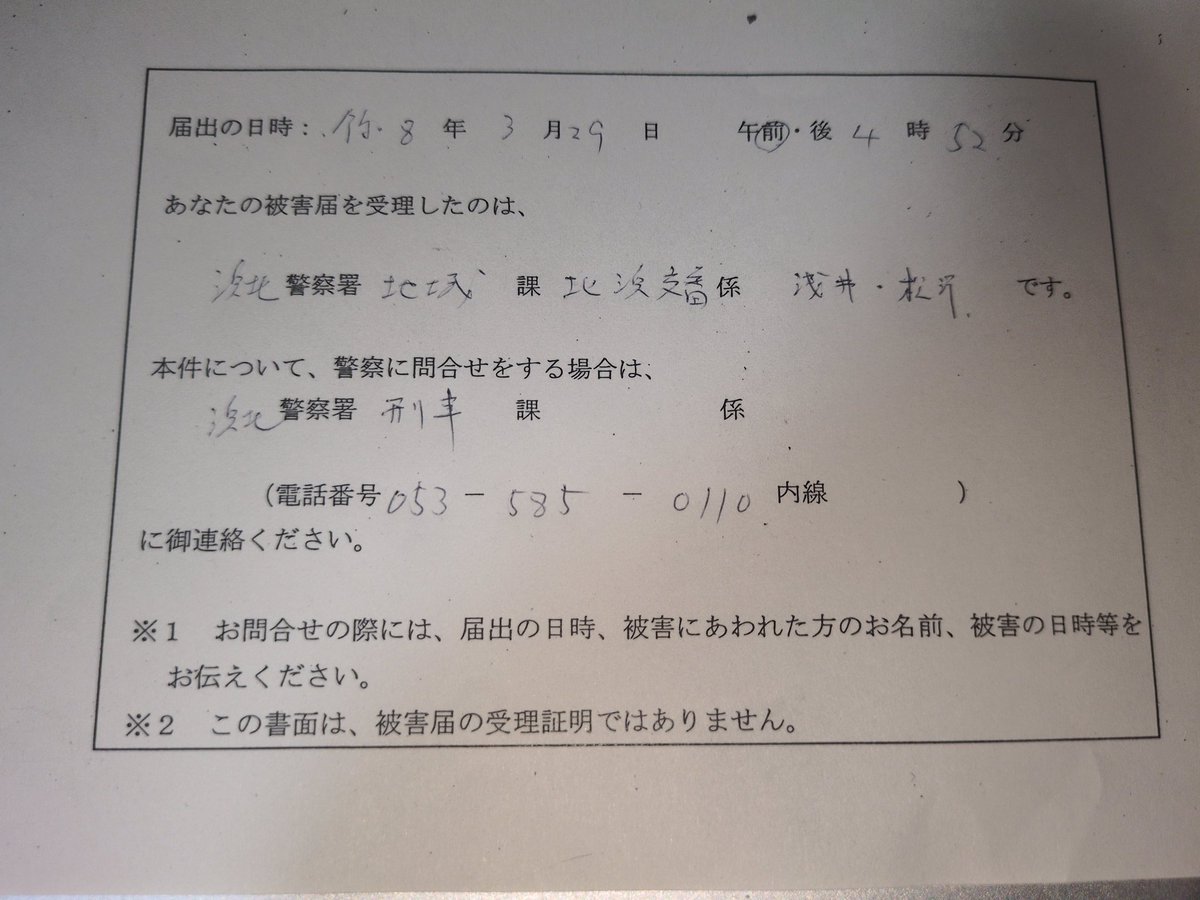 届出の日時：令和8年3月29日 午前・後4時52分
あなたの被害届を受理したのは、
浜北警察署 地域課 北浜交番係 浅井・松沢です。
本件について、警察に問合せをする場合は、
浜北警察署 刑事課 係
（電話番号053－585－0110 内線 ）
に御連絡ください。
※1 お問合せの際には、届出の日時、被害にあわれた方のお名前、被害の日時等を
お伝えください。
※2 この書面は、被害届の受理証明ではありません。